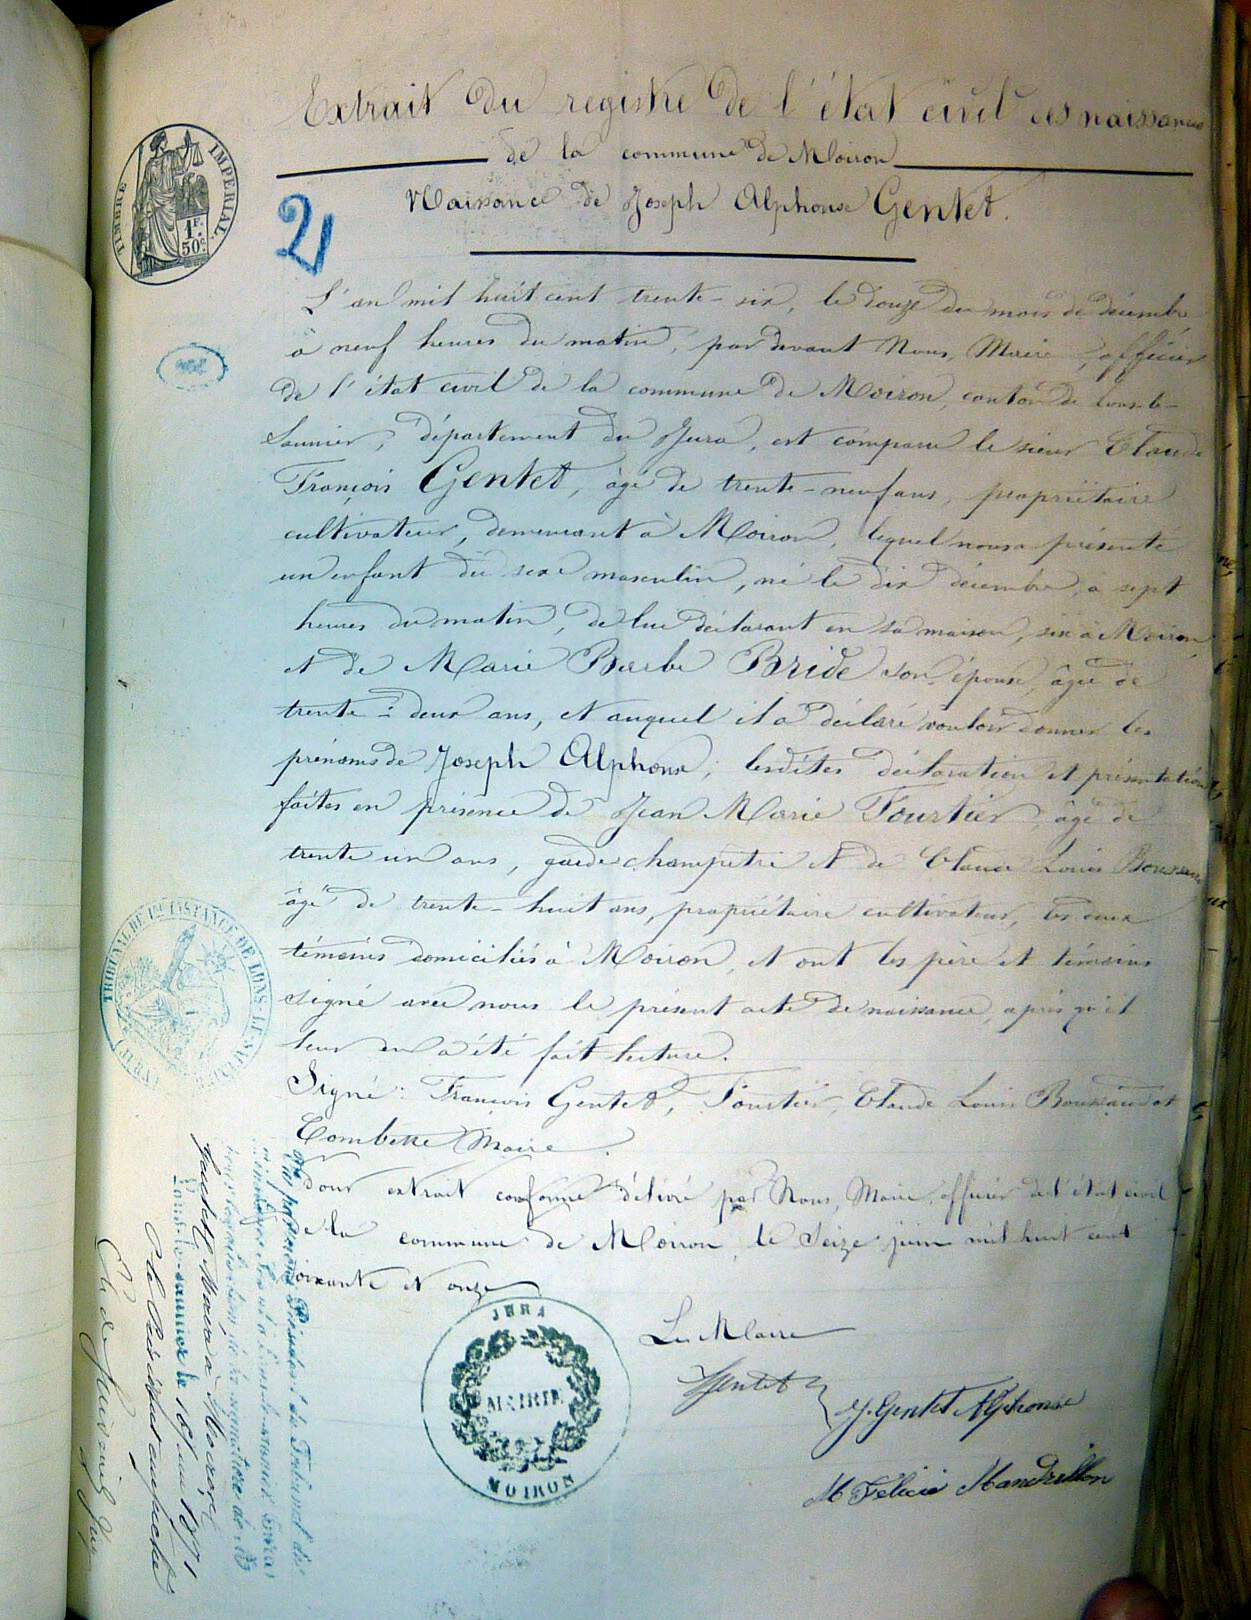 Extrait du registre de l'état civil des naissances
de la commune de Moiron
Naissance de Joseph Alphonse Gentet.
TIMBRE IMPERIAL.
1 F. 50 c.
2
L'an mil huit cent trente-six, le douze du mois de décembre
à neuf heures du matin, par devant Nous, Maire, officier
de l'état civil de la commune de Moiron, canton de Lons-le-
Saunier, département du Jura, est comparu le sieur Claude
François Gentet, âgé de trente-neuf ans, propriétaire
cultivateur, demeurant à Moiron, lequel nous a présenté
un enfant du sexe masculin, né le dix décembre, à sept
heures du matin, de lui déclarant en sa maison, sise à Moiron,
et de Marie Barbe Bride son épouse, âgée de
trente-deux ans, et auquel il a déclaré vouloir donner les
prénoms de Joseph Alphonse; lesdites déclaration et présentation
faites en présence de Jean Marie Fourtier, âgé de
trente un ans, garde champetre et de Claude Louis
âgé de trente-huit ans, propriétaire cultivateur, les deux
témoins domiciliés à Moiron, et ont les père et témoins
signé avec nous le présent acte de naissance, après qu'il
leur en a été fait lecture.
Signé: François Gentet, Fourtier, Claude Louis et
Combette Maire.
Pour extrait conforme délivré par Nous, Maire, officier de l'état civil
de la commune de Moiron, le Seize juin mil huit cent
soixante et onze
Le Maire
Gentet
J. Gentet Alphonse
M Félicie Mandrillon
JURA
MAIRIE
MOIRON
TRIBUNAL DE 1re INSTANCE DE LONS-LE-SAUNIER (JURA)
Président du Tribunal de
la signature de M
Gentet, Maire à Moiron
Lons-le-Saunier le 16 juin 1871
P. le Président empêché